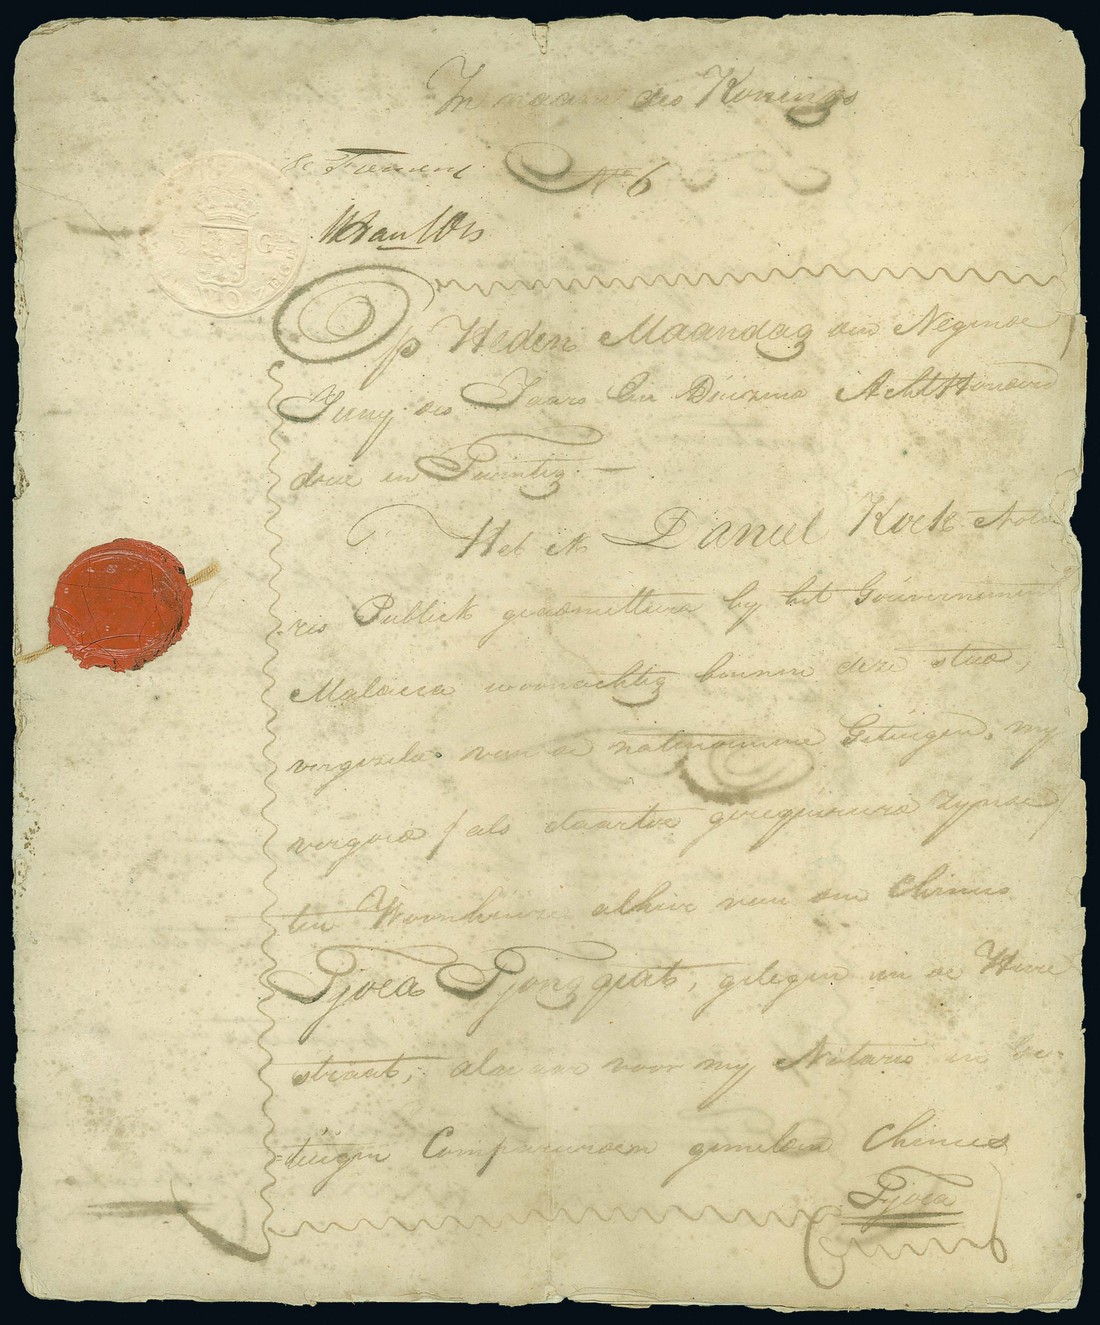 In naam des Konings
No 6
Op Heden Maandag den Negende
Juny des Jaars Een Duizend Acht Honderd
drie en Twintig —
Heb ik Daniel Koek Nota
ris Publick geadmitteerd by het Gouvernement
Malacca woonachtig binnen deze stad,
vergezeld van de natenoemene Getuigen, my
vervoegd / als daartoe gerequireerd zynde /
ten Woonhuize alhier van den Chinees
Tjoea Tjongqiat, gelegen in de Heere
straat, alwaar voor my Notaris en Ge-
=tuigen Compareerden gemelden Chinees
Tjoea